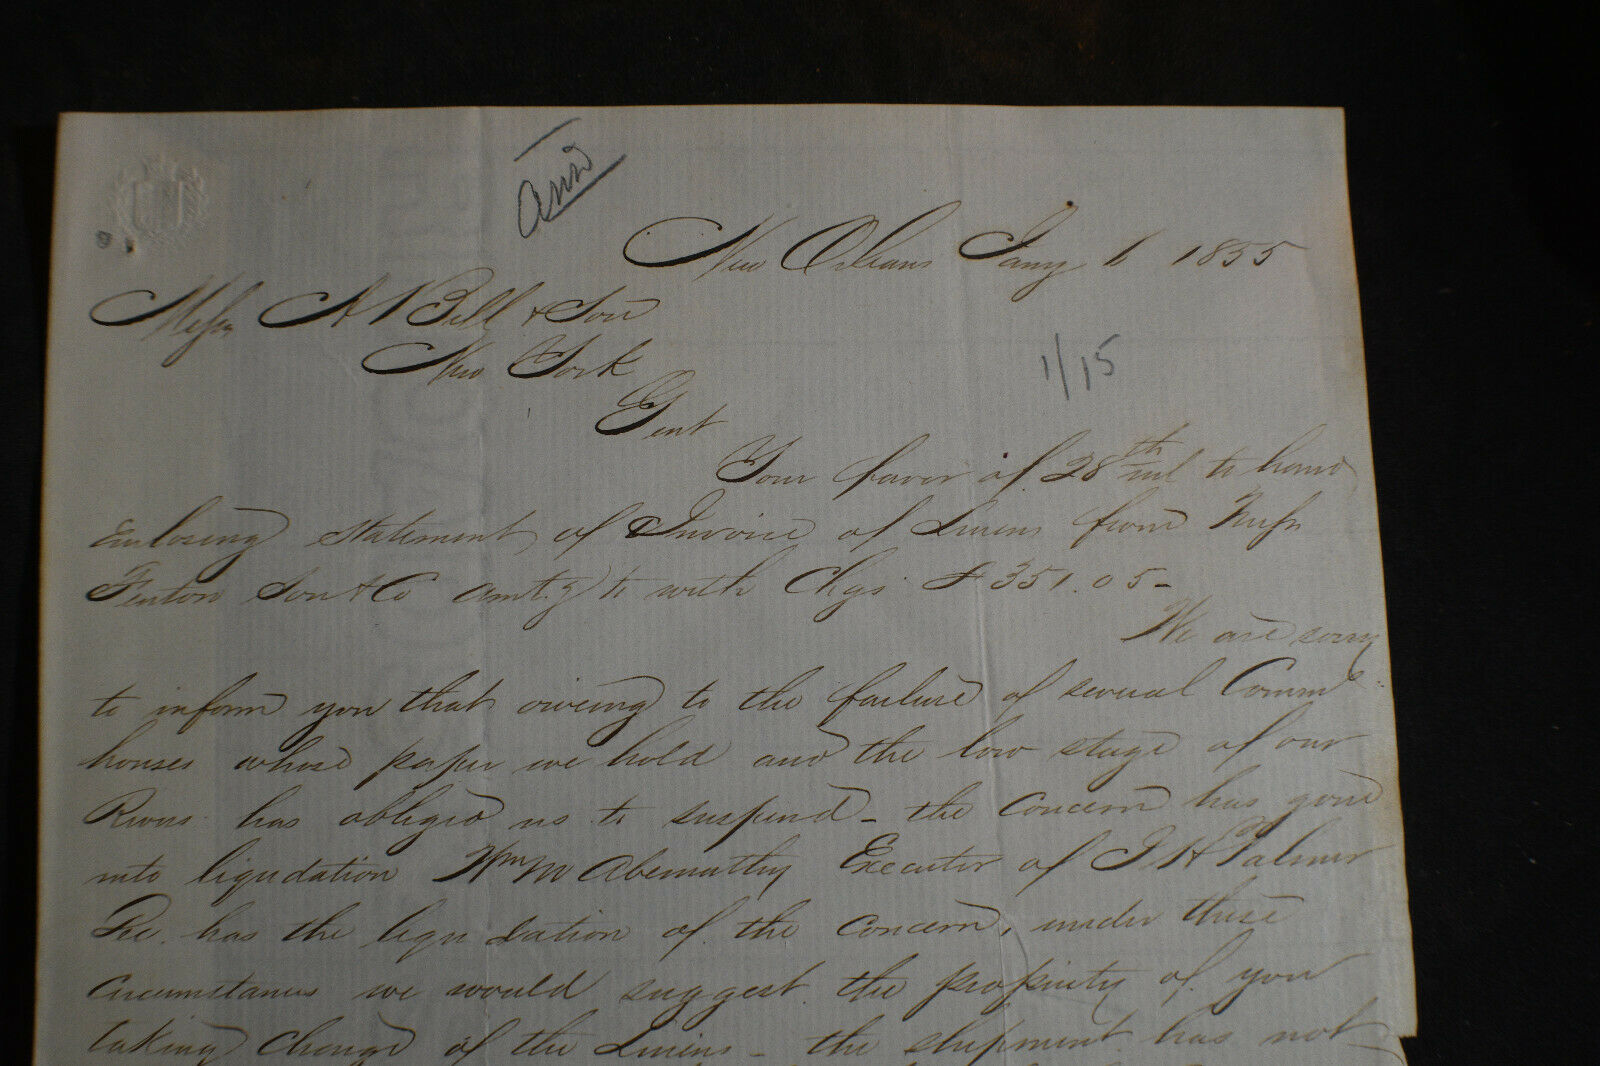 ansd
New Orleans Jany 6 1855
Messrs A N Bell & Son
New York
1/15
Gent
Your favor of 28th ult to hand
Enclosing Statement of Invoice of Linens from Messrs
Fenton Son & Co amt.g to with Chgs $351.05-
We are sorry
to inform you that owing to the failure of several Comml
houses whose paper we hold and the low stage of our
Rivers has obliged us to suspend - the Concern has gone
into liquidation Wm M Abernathy Executor of J H Palmer
has the liquidation of the Concern, under these
circumstances we would suggest the propriety of your
taking charge of the Linens - the shipment has not